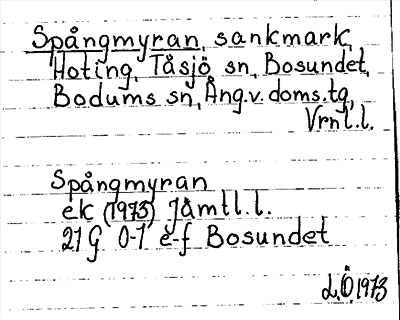 Spångmyran, sankmark,
Hoting, Tåsjö sn, Bosundet,
Bodums sn, Ång.v. doms.tg,
Vrnl.l.
Spångmyran
ek (1973) Jämtl.l.
21G 0-1 e-f Bosundet
L.Ö.1973